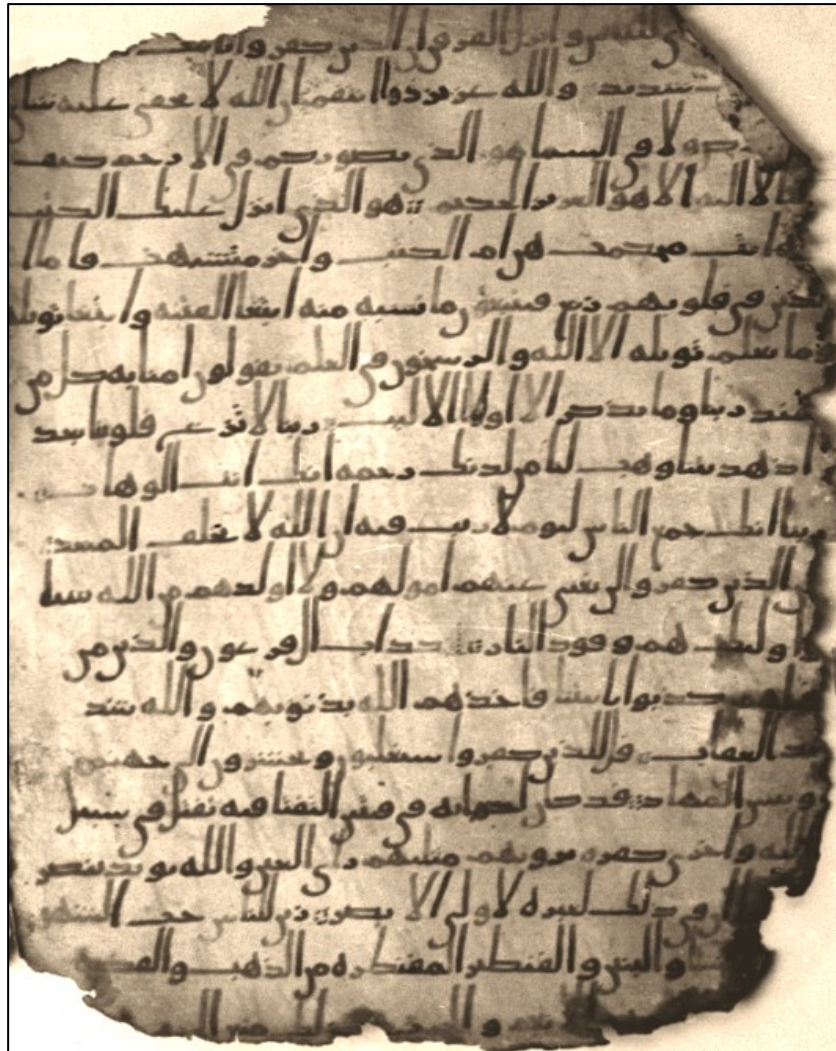 للناس وانزل الفرقان ان الذين كفروا بايت
شديد والله عزيز ذو انتقم ان الله لا يخفى عليه شاي
ولا في السما هو الذي يصوركم في الارحم كيف
لا اله الا هو العزيز الحكيم هو الذي انزل عليك الكتب
ايت محكمت هن ام الكتب واخر متشبهت فاما ا
لذين في قلوبهم زيغ فيتبعون ما تشبه منه ابتغا الفتنه وابتغا تويله
وما يعلم تويله الا الله والرسخون في العلم يقولون امنا به كل من
عند ربنا وما يذكر الا اولوا الالبب ربنا لا تزغ قلوبنا بعد
اذ هديتنا وهب لنا من لدنك رحمه انك انت الوهاب
ربنا انك جمع الناس ليوم لا ريب فيه ان الله لا يخلف الميعد
ان الذين كفروا لن تغني عنهم امولهم ولا اولدهم من الله شيا
واوليك هم وقود النار كداب ال فرعون والذين من
قبلهم كذبوا بايتنا فاخذهم الله بذنوبهم والله شد
يد العقاب قل للذين كفروا ستغلبون وتحشرون الى جهنم
وبيس المهاد قد كان لكم ايه في فيتين التقتا فيه تقتل في سبيل
الله واخرى كفره يرونهم مثليهم راي العين والله يويد بنصر
في ذلك لعبره لاولي الابصر زين للناس حب الشهو
والبنين والقنطير المقنطره من الذهب والفضه